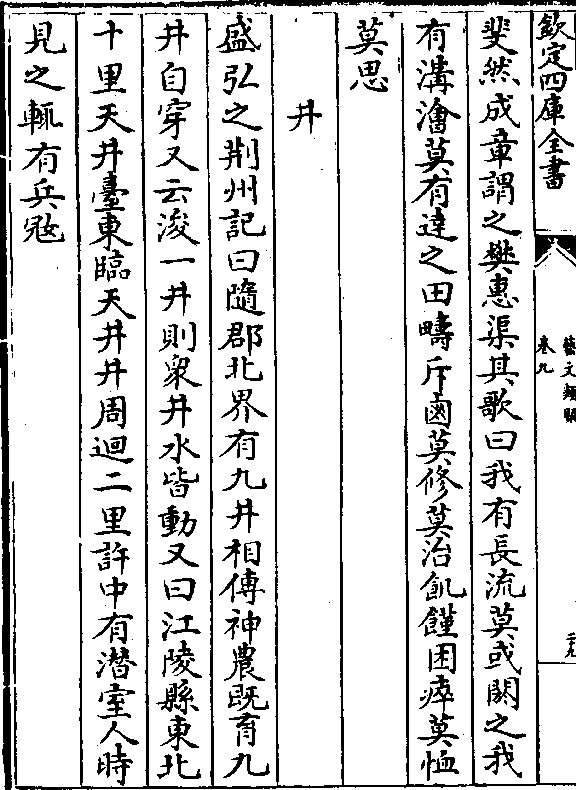 欽定四庫全書
藝文類聚
卷九
二十九
斐然成章謂之樊惠渠其歌曰我有長流莫或闕之我
有溝澮莫有達之田疇斥鹵莫修莫治飢饉困瘁莫恤
莫思
井
盛弘之荆州記曰隨郡北界有九井相傳神農既育九
井自穿又云浚一井則衆井水皆動又曰江陵縣東北
十里天井臺東臨天井井周迴二里許中有潛室人時
見之輒有兵寇